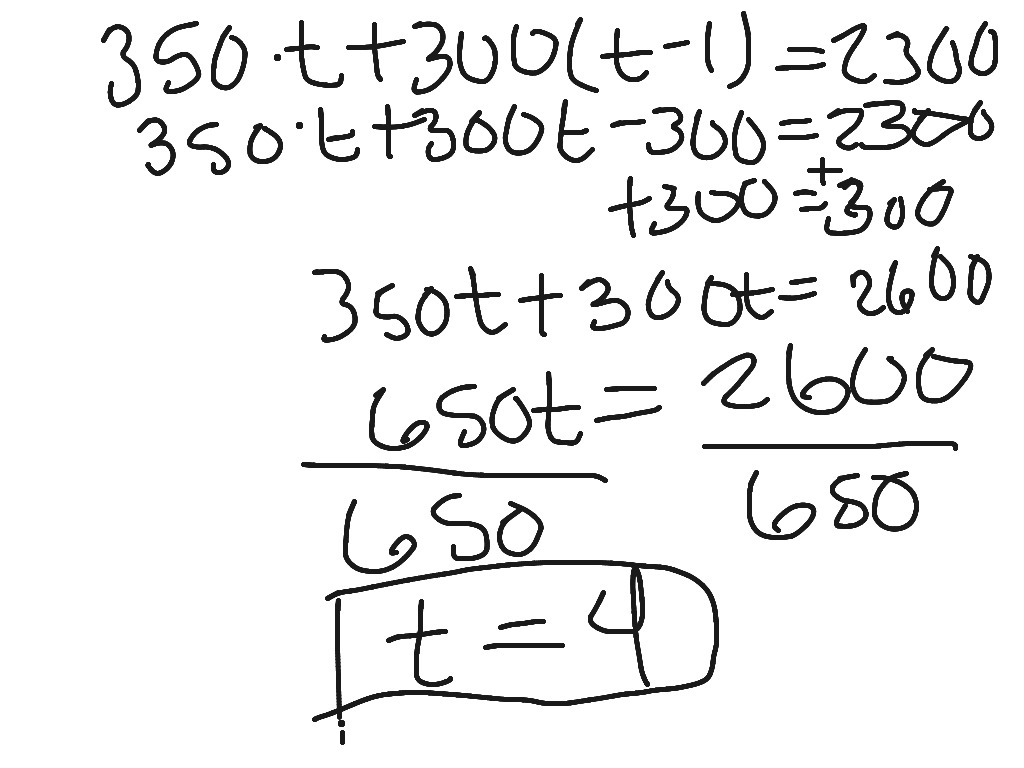 350·t+300(t-1)=2300
350·t+300t-300=2300
+300=+300
350t+300t=2600
650t=2600
650 650
t=4